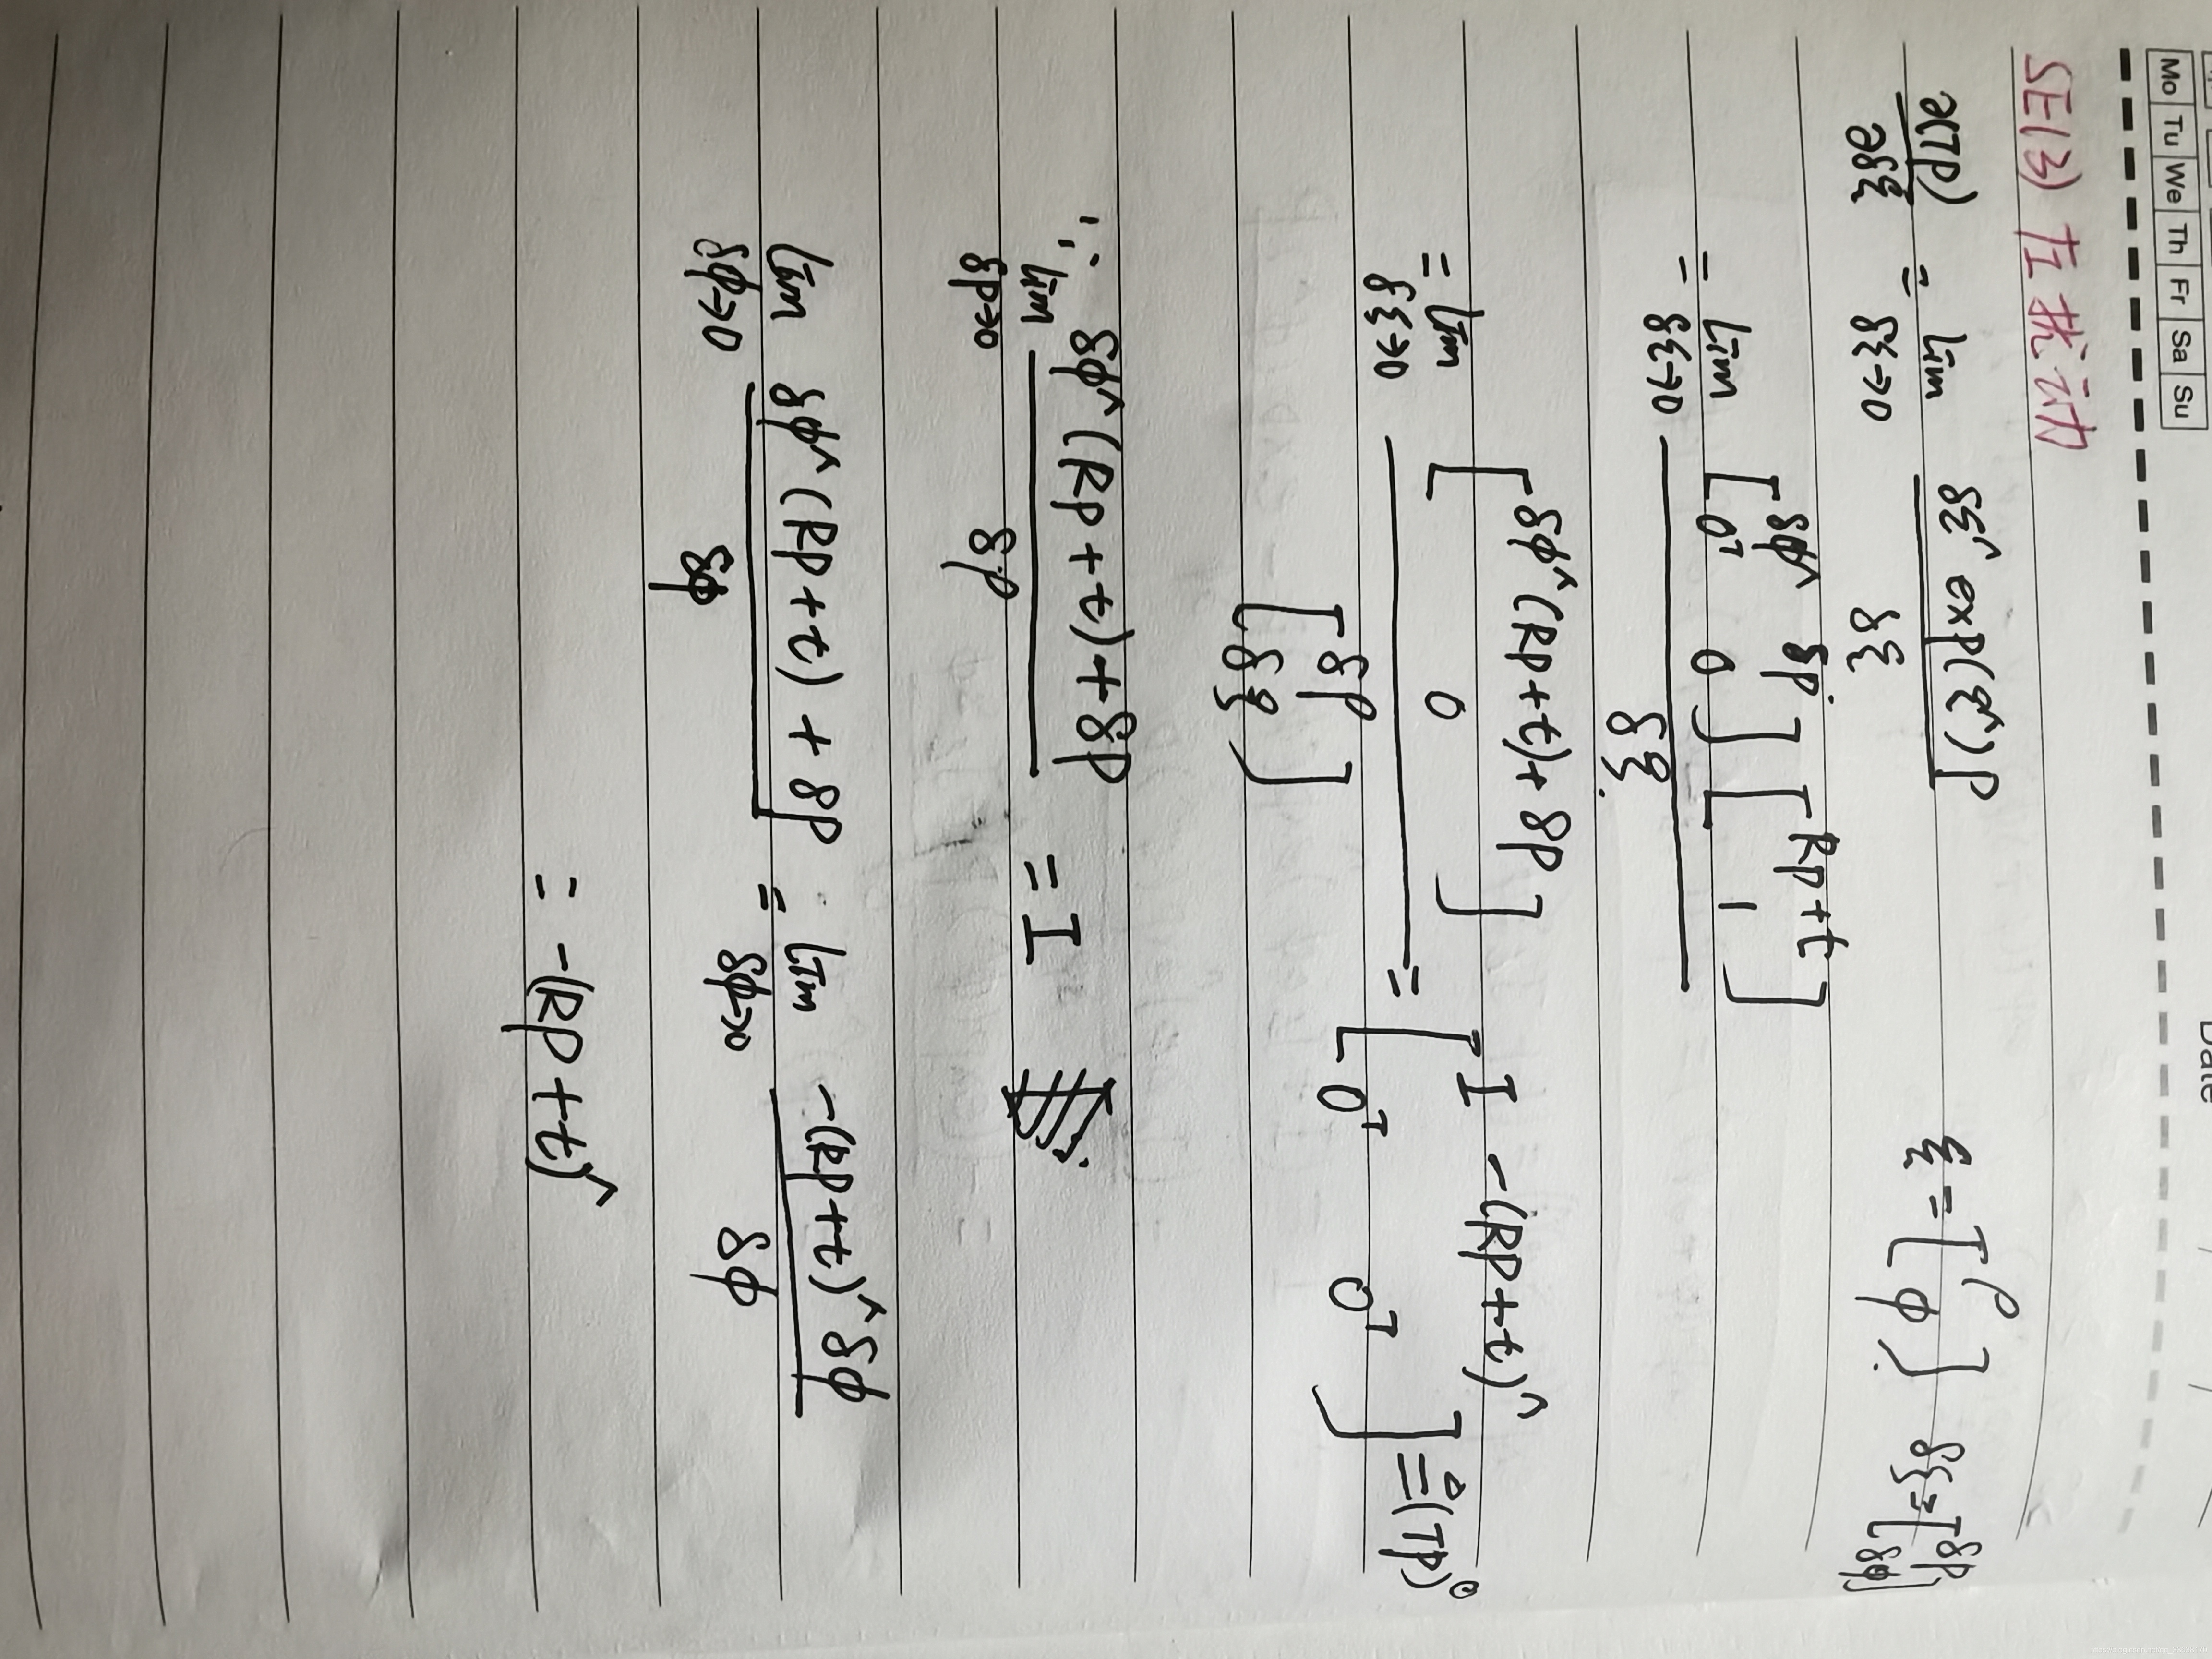 Mo Tu We Th Fr Sa Su
Date / /
SE(3) 左扰动
∂(Tp)/∂δξ = lim_{δξ→0} δξ^ exp(ξ^)p / δξ    ξ = [ρ φ]    δξ = [δρ δφ]
= lim_{δξ→0} [δφ^ δρ; 0ᵀ 0] [Rp+t; 1] / δξ
= lim_{δξ→0} [δφ^(Rp+t)+δρ; 0] / [δρ; δξ] = [I -(Rp+t)^; 0ᵀ 0ᵀ] ≙ (Tp)^⊙
∵ lim_{δρ→0} δφ^(Rp+t)+δρ / δρ = I
lim_{δφ→0} δφ^(Rp+t)+δρ / δφ = lim_{δφ→0} -(Rp+t)^δφ / δφ
= -(Rp+t)^